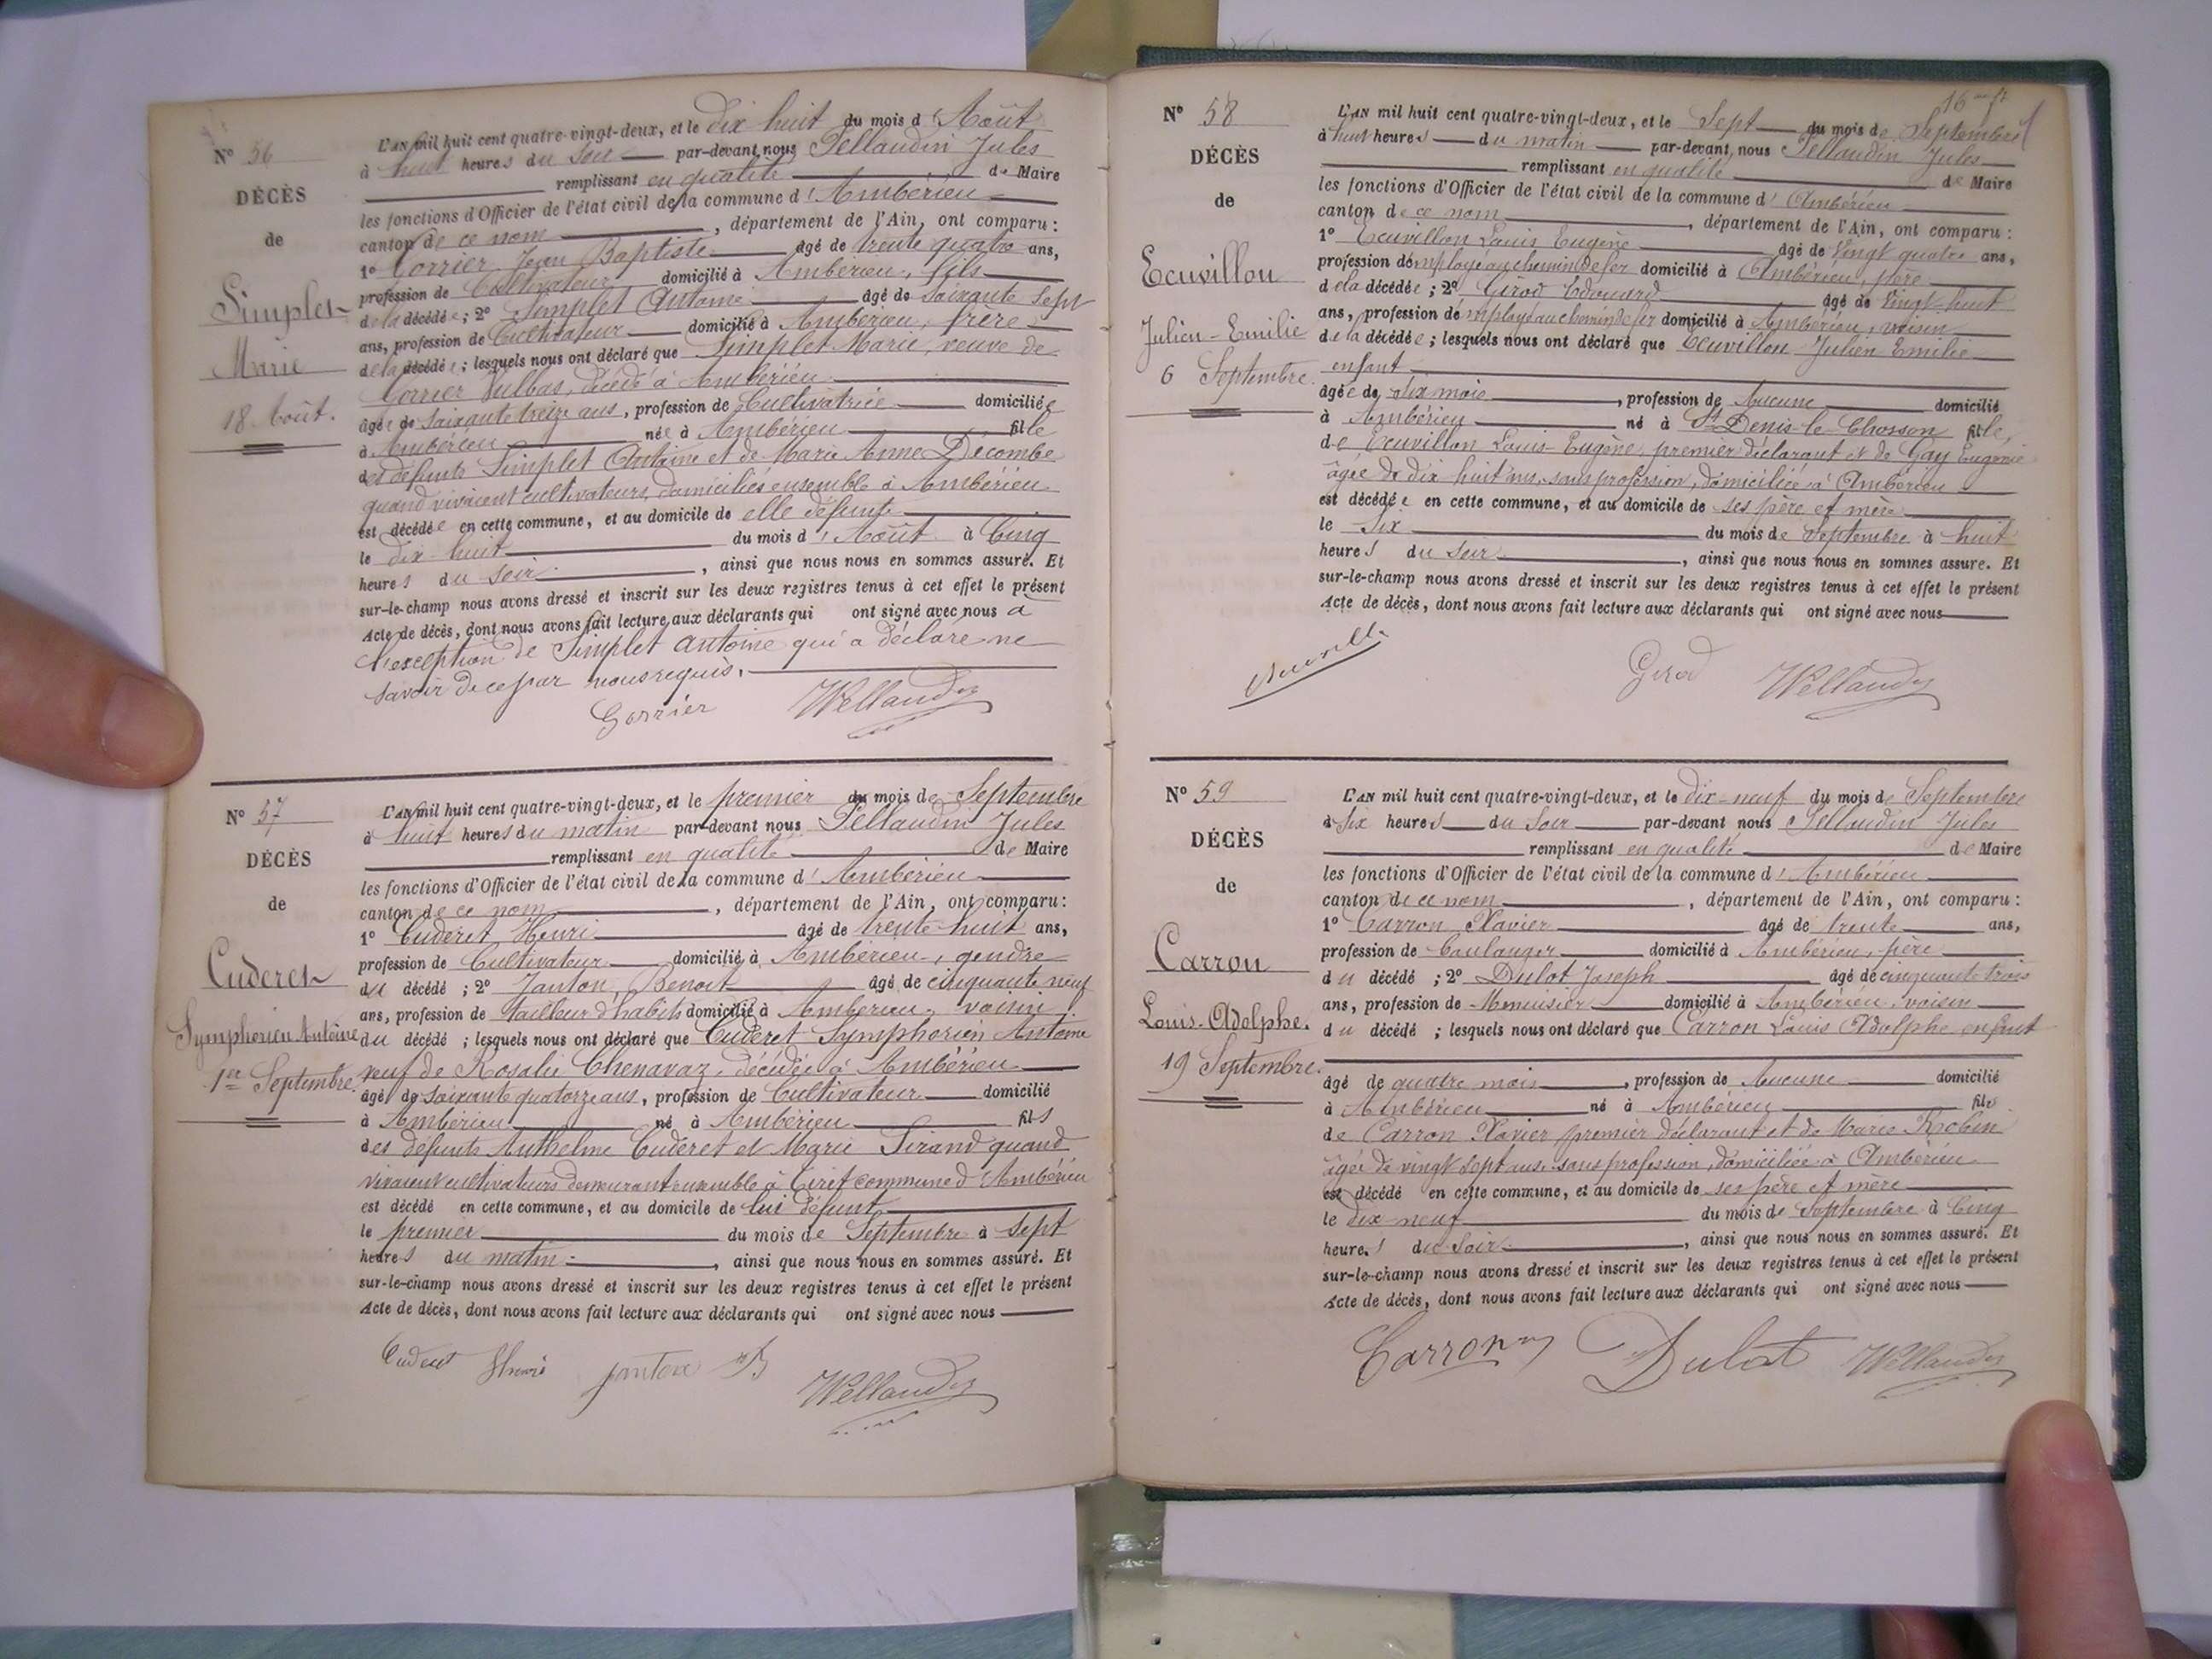 N° 56
DÉCÈS
de
Simplet
Marie
18 Août.
L'AN mil huit cent quatre-vingt-deux, et le dix huit du mois d'Août
à huit heures du soir par-devant nous Pellaudin Jules
remplissant en qualité de Maire
les fonctions d'Officier de l'état civil de la commune d'Ambérieu
canton de ce nom, département de l'Ain, ont comparu :
1° Gorrier Jean Baptiste âgé de trente quatre ans,
profession de Cultivateur domicilié à Ambérieu, fils
de la décédée ; 2° Simplet Antoine âgé de soixante sept
ans, profession de Cultivateur domicilié à Ambérieu, frère
de la décédée ; lesquels nous ont déclaré que Simplet Marie, veuve de
Gorrier Vulbas, décédé à Ambérieu
âgée de soixante treize ans, profession de Cultivatrice domiciliée
à Ambérieu née à Ambérieu fille
des défunts Simplet Antoine et de Marie Anne Décombe
quand vivaient cultivateurs, domiciliés ensemble à Ambérieu
est décédée en cette commune, et au domicile de elle défunte
le dix-huit du mois d'Août à Cinq
heures du soir, ainsi que nous nous en sommes assuré. Et
sur-le-champ nous avons dressé et inscrit sur les deux registres tenus à cet effet le présent
Acte de décès, dont nous avons fait lecture aux déclarants qui ont signé avec nous à
l'exception de Simplet Antoine qui a déclaré ne
savoir de ce par nous requis.
Gorrier Pellaudin
N° 57
DÉCÈS
de
Cuderet
Symphorien Antoine
1er Septembre.
L'AN mil huit cent quatre-vingt-deux, et le premier du mois de Septembre
à huit heures du matin par-devant nous Pellaudin Jules
remplissant en qualité de Maire
les fonctions d'Officier de l'état civil de la commune d'Ambérieu
canton de ce nom, département de l'Ain, ont comparu :
1° Cuderet Henri âgé de trente-huit ans,
profession de Cultivateur domicilié à Ambérieu, gendre
du décédé ; 2° Janton, Benoit âgé de cinquante neuf
ans, profession de tailleur d'habits domicilié à Ambérieu voisin
du décédé ; lesquels nous ont déclaré que Cuderet Symphorien Antoine
veuf de Rosalie Chenavaz, décédée à Ambérieu
âgé de soixante quatorze ans, profession de Cultivateur domicilié
à Ambérieu né à Ambérieu fils
des défunts Anthelme Cuderet et Marie Sirand quand
vivaient cultivateurs demeurant ensemble à Tiret commune d'Ambérieu
est décédé en cette commune, et au domicile de lui défunt
le premier du mois de Septembre à sept
heures du matin, ainsi que nous nous en sommes assuré. Et
sur-le-champ nous avons dressé et inscrit sur les deux registres tenus à cet effet le présent
Acte de décès, dont nous avons fait lecture aux déclarants qui ont signé avec nous
Cuderet Henri janton B Pellaudin
N° 58
DÉCÈS
de
Ecuvillon
Julien-Emilie
6 Septembre.
L'AN mil huit cent quatre-vingt-deux, et le Sept du mois de Septembre
à huit heures du matin par-devant nous Pellaudin Jules
remplissant en qualité de Maire
les fonctions d'Officier de l'état civil de la commune d'Ambérieu
canton de ce nom, département de l'Ain, ont comparu :
1° Ecuvillon Louis Eugène âgé de Vingt quatre ans,
profession d'employé au chemin de fer domicilié à Ambérieu, père
de la décédée ; 2° Girod Edouard âgé de Vingt-huit
ans, profession d'employé au chemin de fer domicilié à Ambérieu, voisin
de la décédée ; lesquels nous ont déclaré que Ecuvillon Julien Emilie
enfant
âgée de six mois, profession de Aucune domicilié
à Ambérieu né à St Denis-le-Chosson fille,
de Ecuvillon Louis-Eugène, premier déclarant et de Gay Eugénie
âgée de dix huit ans, sans profession, domiciliée à Ambérieu
est décédée en cette commune, et au domicile de ses père et mère
le Six du mois de Septembre à huit
heures du soir, ainsi que nous nous en sommes assuré. Et
sur-le-champ nous avons dressé et inscrit sur les deux registres tenus à cet effet le présent
Acte de décès, dont nous avons fait lecture aux déclarants qui ont signé avec nous
Girod Pellaudin
N° 59
DÉCÈS
de
Carron
Louis-Adolphe.
19 Septembre.
L'AN mil huit cent quatre-vingt-deux, et le dix-neuf du mois de Septembre
à Six heures du Soir par-devant nous Pellaudin Jules
remplissant en qualité de Maire
les fonctions d'Officier de l'état civil de la commune d'Ambérieu
canton de ce nom, département de l'Ain, ont comparu :
1° Carron Xavier âgé de trente ans,
profession de Boulanger domicilié à Ambérieu, père
du décédé ; 2° Dulot Joseph âgé de cinquante trois
ans, profession de Menuisier domicilié à Ambérieu, voisin
du décédé ; lesquels nous ont déclaré que Carron Louis Adolphe enfant
âgé de quatre mois, profession de Aucune domicilié
à Ambérieu né à Ambérieu fils
de Carron Xavier premier déclarant et de Marie Robin
âgée de vingt sept ans, sans profession, domiciliée à Ambérieu
est décédé en cette commune, et au domicile de ses père et mère
le dix-neuf du mois de Septembre à Cinq
heures du Soir, ainsi que nous nous en sommes assuré. Et
sur-le-champ nous avons dressé et inscrit sur les deux registres tenus à cet effet le présent
Acte de décès, dont nous avons fait lecture aux déclarants qui ont signé avec nous
Carron Dulot Pellaudin